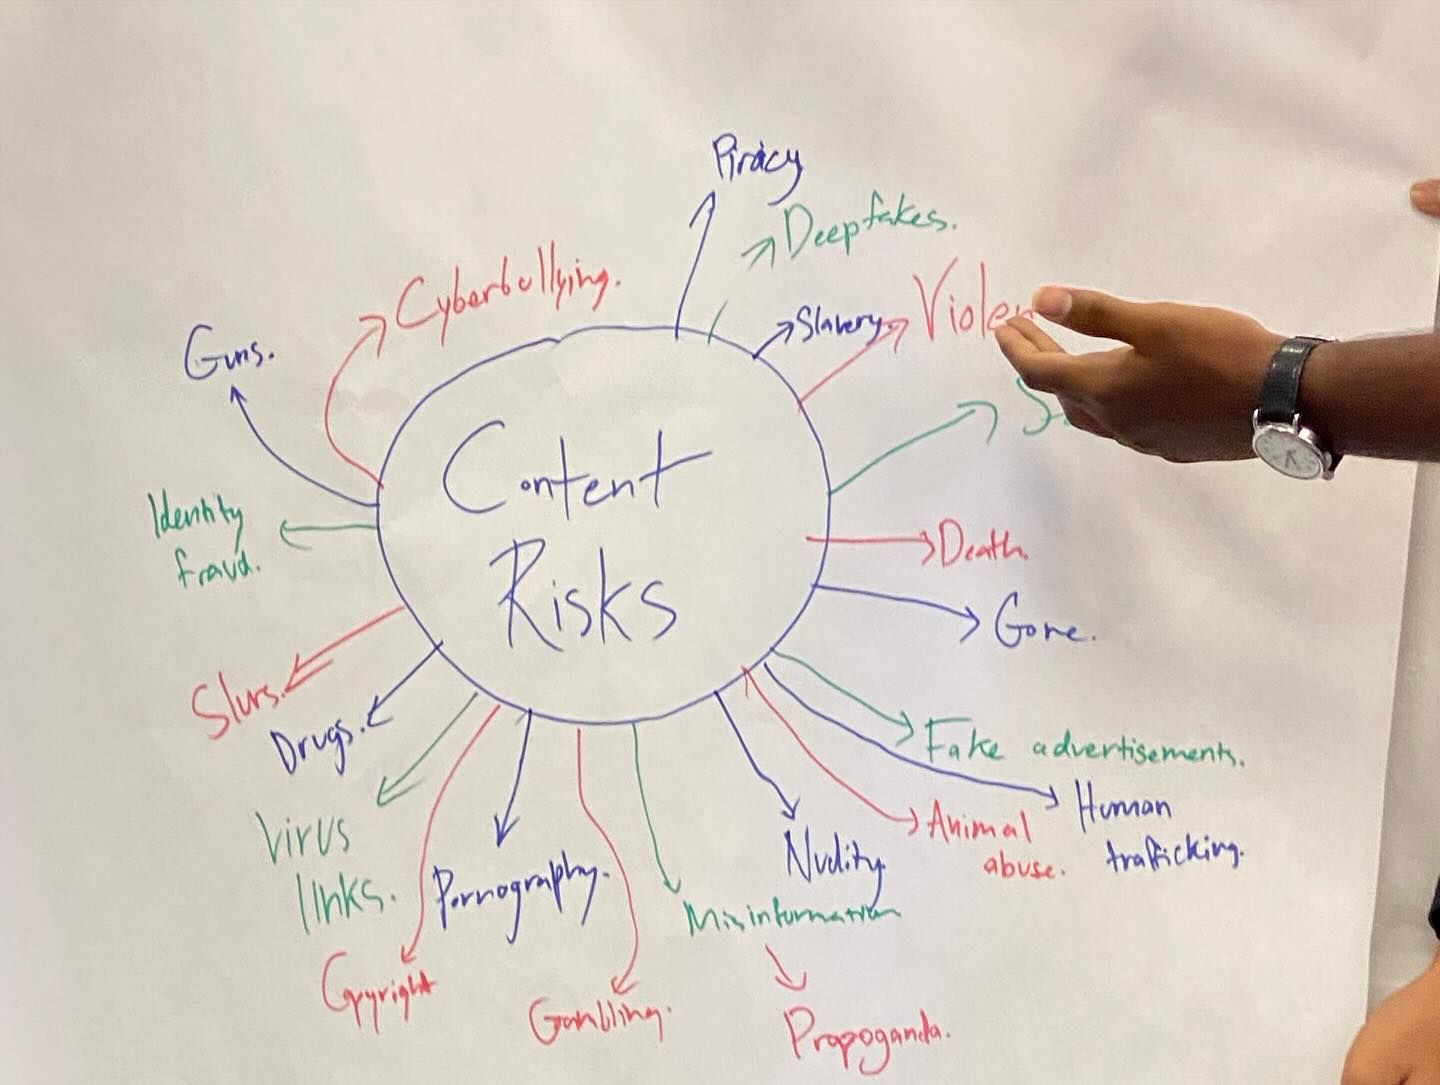 Piracy
Deepfakes.
Slavery
Cyberbullying.
Guns.
Content
Risks
Identity
fraud.
Death.
Gore.
Slurs.
Drugs.
Fake advertisements.
Human
trafficking.
Animal
abuse.
Virus
links.
Pornography.
Nudity
Misinformation
Copyright
Gambling.
Propoganda.